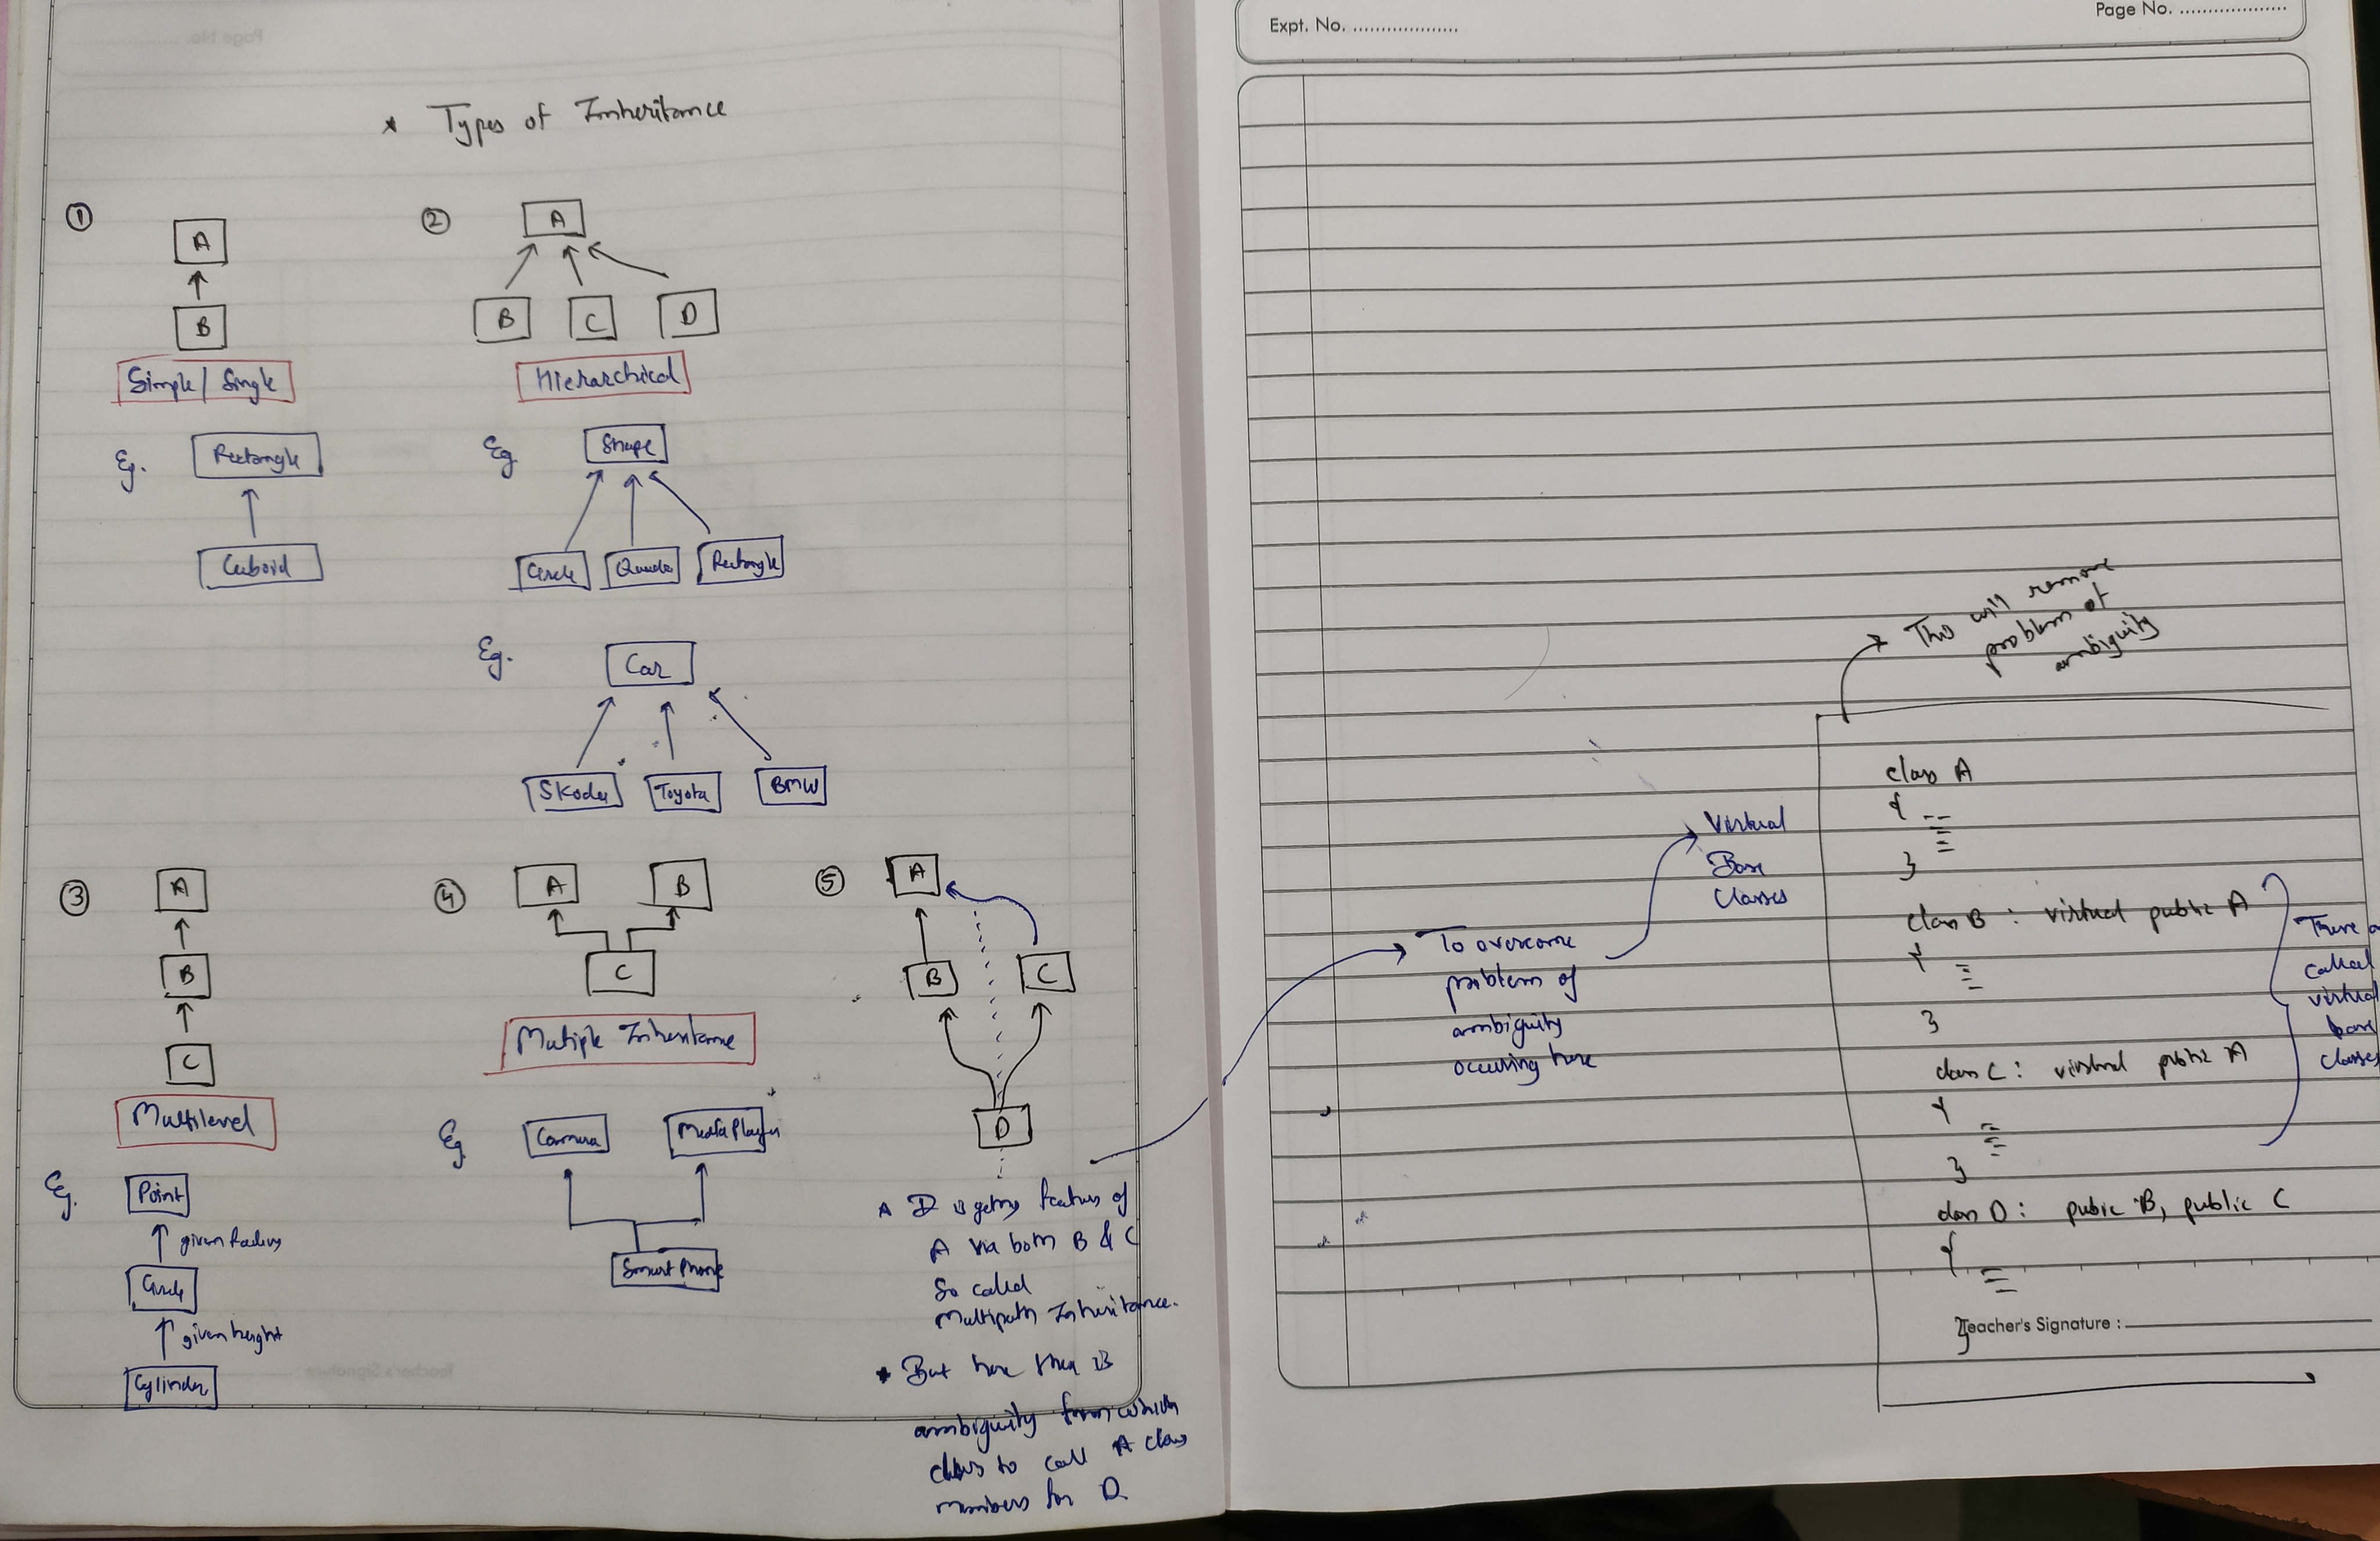 * Types of Inheritance
①
A
B
Simple / Single
Eg.
Rectangle
Cuboid
②
A
B C D
Hierarchical
Eg
Shape
Circle Rectangle
Eg.
Car
Skoda Toyota BMW
③
A
B
C
Multilevel
Eg.
Point
given radius
Circle
given height
Cylinder
④
A B
C
Mutiple Inheritance
Eg
Camera Media Player
Smart Phone
⑤
A
B C
D
D is getting features of
A via both B & C
So called
Multipath Inheritance.
* But here there is
ambiguity from which
class to call A class
members for D
Expt. No. ....................
Page No. ....................
To overcome
problem of
ambiguity
occuring here
Virtual
Base
Classes
This will remove
problem of
ambiguity
class A
{
}
class B : virtual public A
{
}
class C : virtual public A
{
}
class D : pubic B, public C
{
}
These
called
virtual
base
classes
Teacher's Signature :